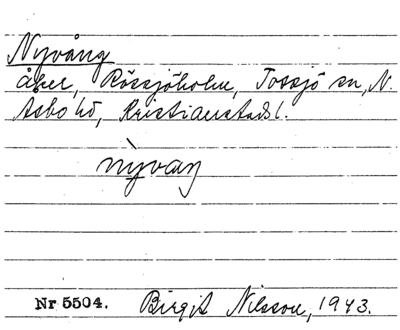 Nyvång
åker, Rössjöholm, Tossjö sn, N.
Åsbo hd, Kristianstads l.
nỳvaŋ
Nr 5504. Birgit Nilsson, 1943.